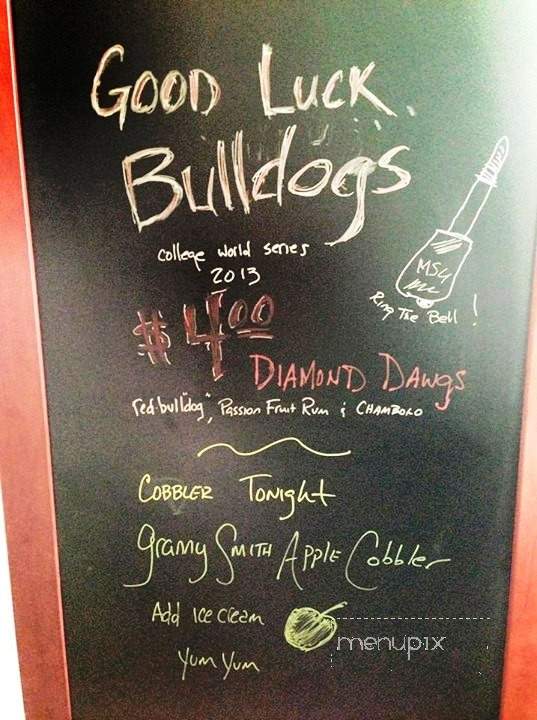 Good Luck
Bulldogs
college world series
2013
MSU
Ring The Bell!
$4.00
Diamond Dawgs
red-bull"dog", Passion Fruit Rum & Chamboro
Cobbler Tonight
Granny Smith Apple Cobbler
Add Ice Cream
Yum Yum
menupix